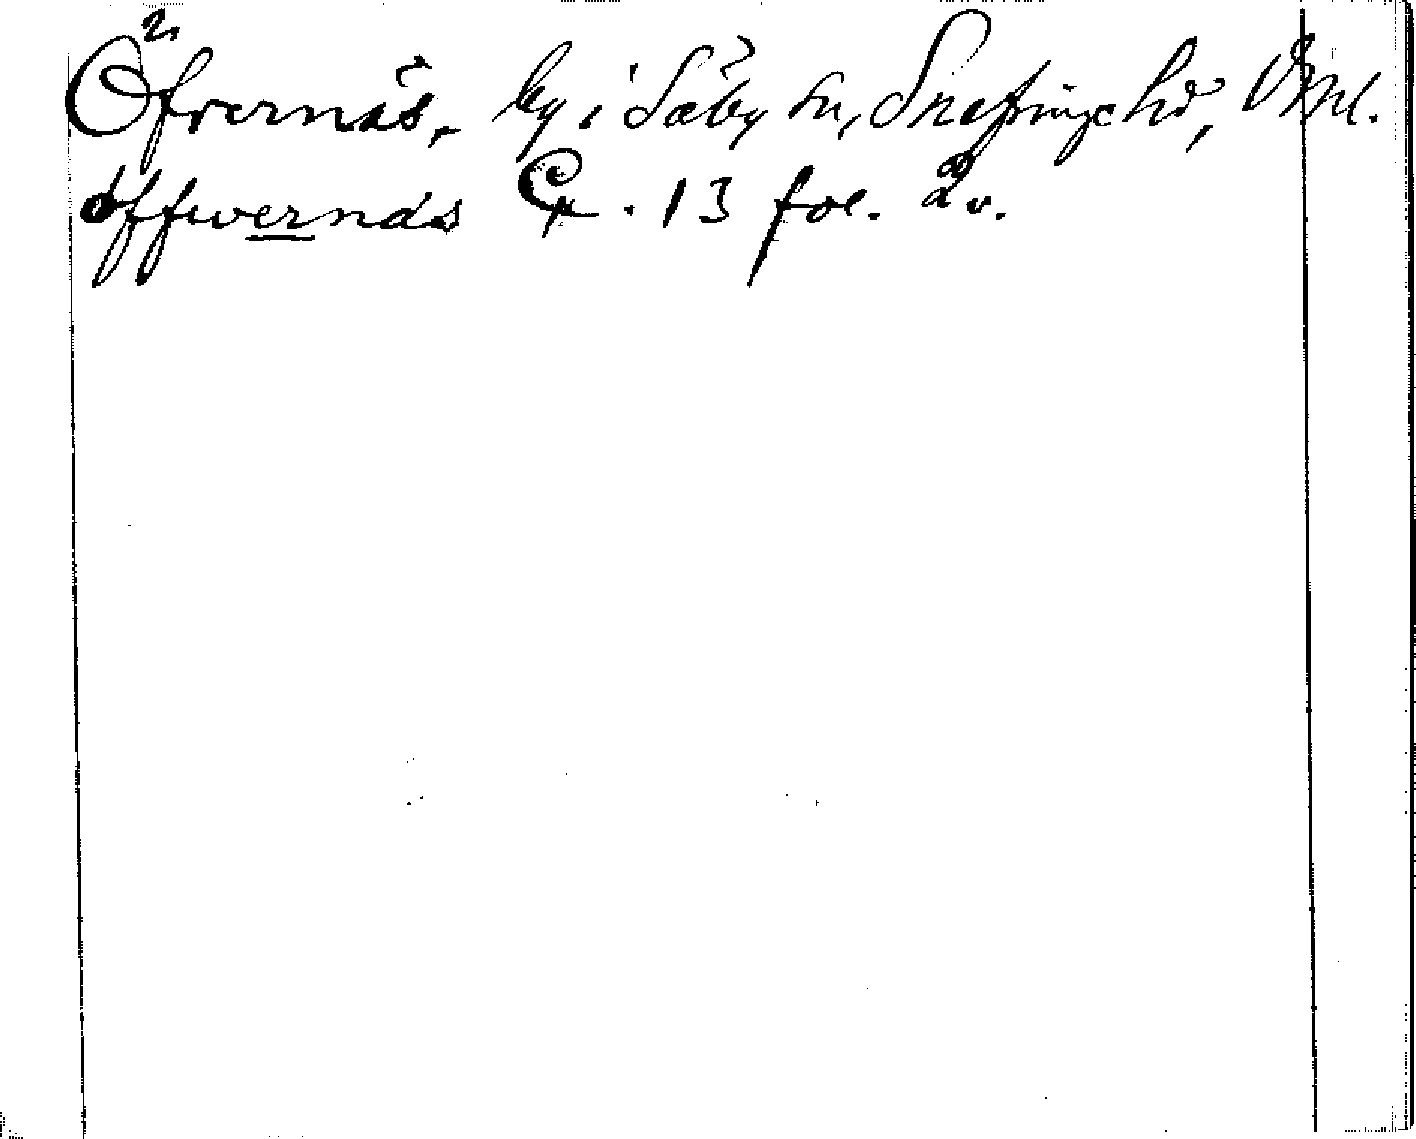 Öfvernäs, by i Säby sn, Snefringe hd, Vml.
öffwernäs Cx. 13 fol. 2 v.